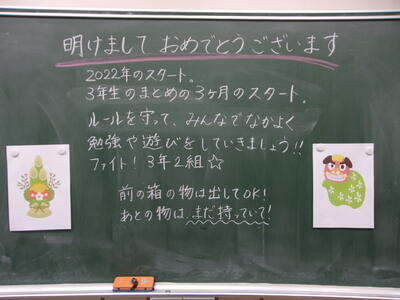 明けまして おめでとうございます
2022年のスタート。
3年生のまとめの3ヶ月のスタート。
ルールを守って、みんなでなかよく
勉強や遊びをしていきましょう!!
ファイト!3年2組☆
前の箱の物は出してOK!
あとの物は、まだ持っていて!